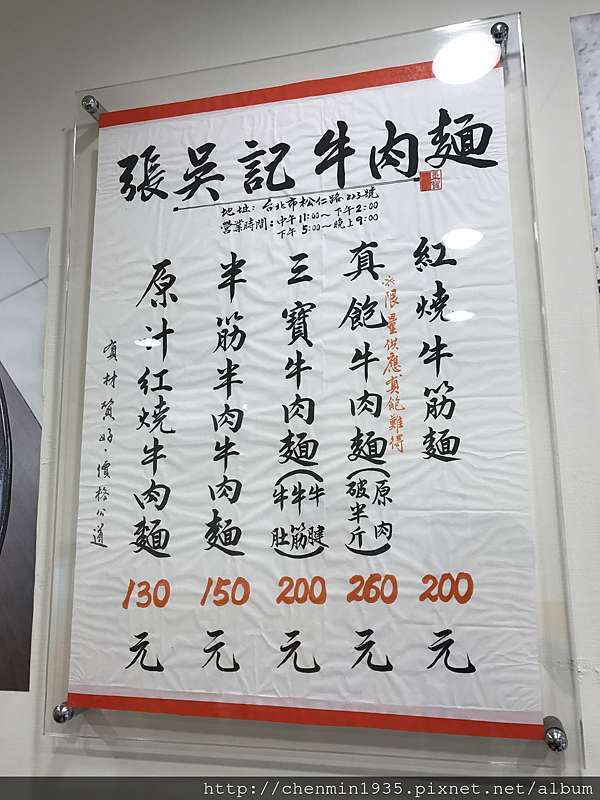 張吳記牛肉麵
地址：台北市松仁路223號
營業時間：中午11:00～下午2:00
下午5:00～晚上9:00
紅燒牛筋麵
200
元
真飽牛肉麵(原肉破半斤)
※限量供應真飽難得
260
元
三寶牛肉麵(牛腱牛筋牛肚)
200
元
半筋半肉牛肉麵
150
元
原汁紅燒牛肉麵
130
元
實材質好·價格公道
http://chenmin1935.pixnet.net/album